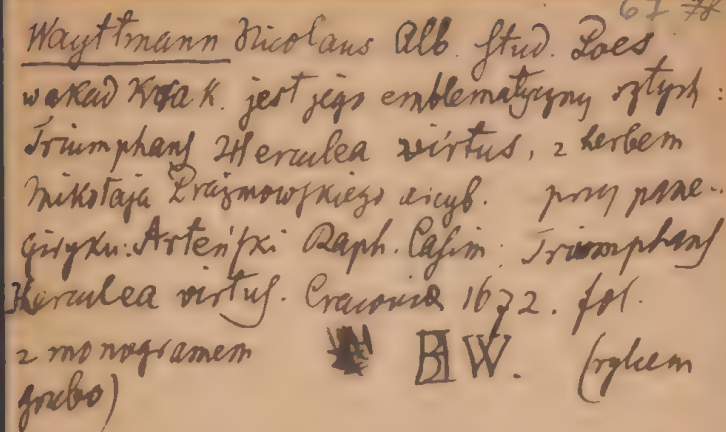 67 78
Wayttmann Nicolaus Alb. Stud. Poes
w akad Krak. jest jego emblematyczny sztych:
Triumphans Herculea virtus, z herbem
Mikołaja Prażmowskiego arcyb. przy pane-
giryku: Arteński Raph. Casim. Triumphans
Herculea virtus. Cracoviae 1672. fol.
z monogramem BAW. (rylcem
grubo)